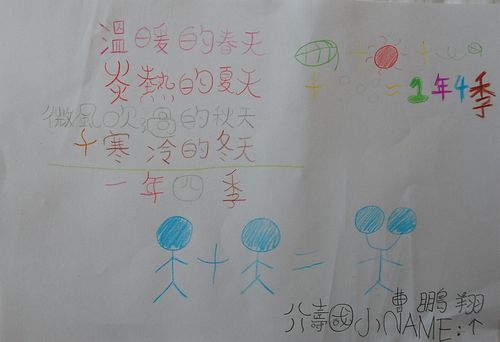 溫暖的春天
炎熱的夏天
微風吹過的秋天
+寒冷的冬天
一年四季
+ +
+ =1年4季
+ =
曹鵬翔
公壽國小NAME:↑